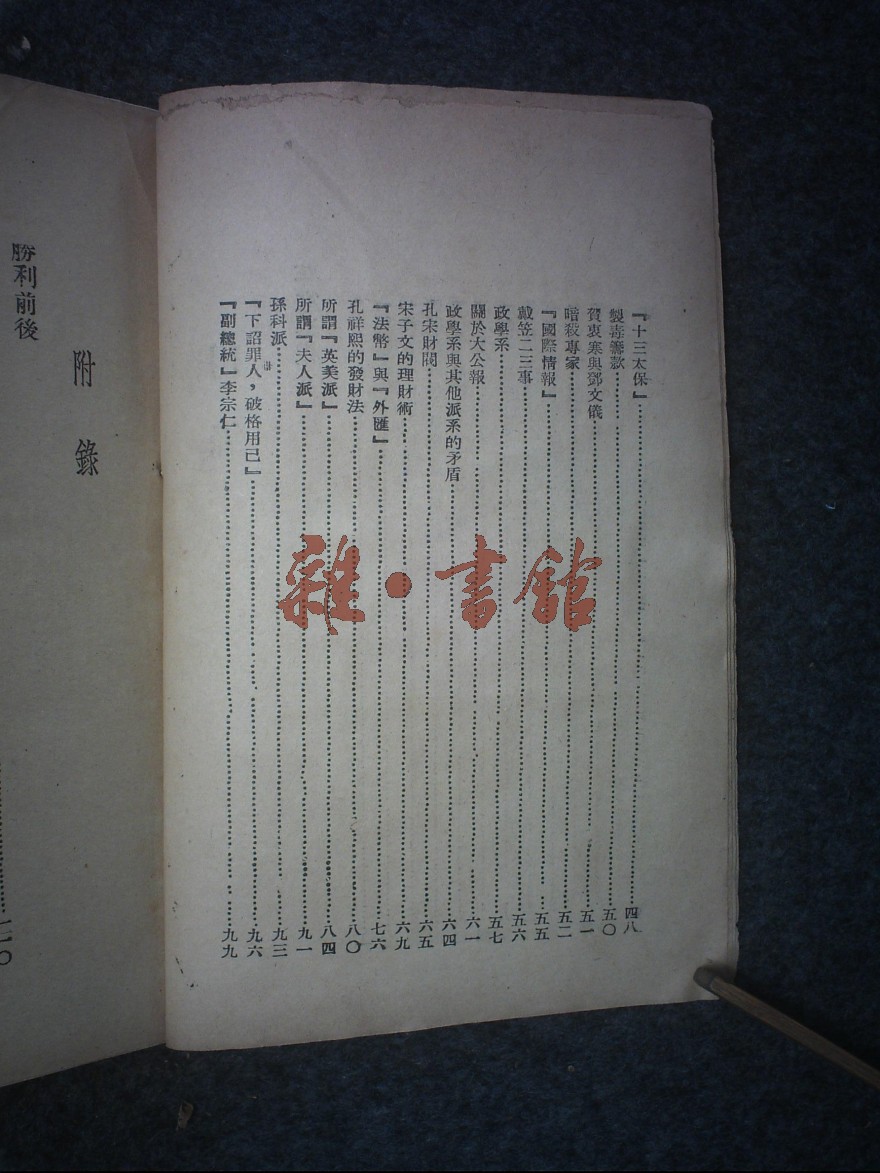 『十三太保』……四八
製毒籌款……五〇
賀衷寒與鄧文儀……五一
暗殺專家……五二
『國際情報』……五五
戴笠二三事……五六
政學系……五七
關於大公報……六一
政學系與其他派系的矛盾……六四
孔宋財閥……六五
宋子文的理財術……六九
『法幣』與『外匯』……七六
孔祥熙的發財法……八〇
所謂『英美派』……八四
所謂『夫人派』……九一
孫科派……九三
『下詔罪人，破格用己』……九六
『副總統』李宗仁……九九
附錄
勝利前後……一一〇
雜·書館